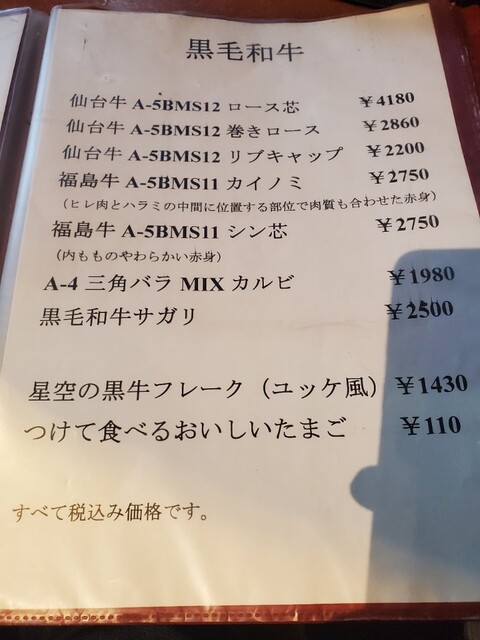 黒毛和牛
仙台牛 A-5BMS12 ロース芯 ￥4180
仙台牛 A-5BMS12 巻きロース ￥2860
仙台牛 A-5BMS12 リブキャップ ￥2200
福島牛 A-5BMS11 カイノミ ￥2750
（ヒレ肉とハラミの中間に位置する部位で肉質も合わせた赤身）
福島牛 A-5BMS11 シン芯 ￥2750
（内もものやわらかい赤身）
A-4 三角バラ MIX カルビ ￥1980
黒毛和牛サガリ ￥2500
星空の黒牛フレーク（ユッケ風） ￥1430
つけて食べるおいしいたまご ￥110
すべて税込み価格です。